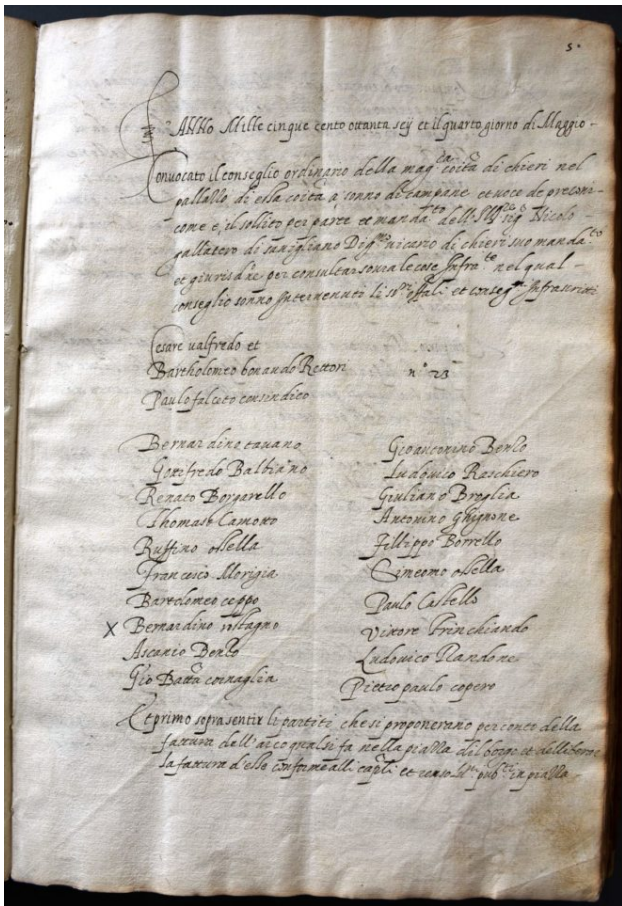 5
ANNO Mille cinque cento ottanta sey et il quarto giorno di Maggio
Convocato il conseglio ordinario della mag.ca coità di chieri nel
pallallo di essa coità a sonno di campane et voce de preconi
come e, il sollito per parte et manda.to dell'Ill. sig. Nicolo
di Dig.mo vicario di chieri suo manda.to
et per consultar sovra le cose Infra.te nel qual
conseglio sonno Intervenuti li et Infrascritti
Cesare valfredo et
Bartholomeo bonaudo Rettori n° 23
Paulo falcito consindico
Bernardino tavano
Gottifredo Balbiano
Renato Borgarello
Thomaso Camoxo
Ruffino ossella
Francesco Morigia
Bartolomeo ceppo
X Bernardino rostagno
Ascanio Benso
Gio Batta cornaglia
Gioantonino Benso
Ludovico Raschiero
Giuliano Broglia
Antonino Ghignone
Fillippo Borrello
Simeomo ossella
Paulo Castello
Vittore Trinchiando
Ludovico Randone
Pietro paulo copero
Et primo sopra sentir li partiti che si proponerano per conto della
fattura dell'arco qual si fa nella pialla del borgo et
la fattura d'esso conforme alli cap.li et in pialla